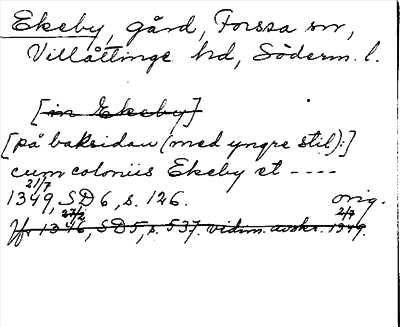 Ekeby, gård, Forssa sn,
Villåttinge hd, Söderm. l.
[in Ekeby]
[på baksidan (med yngre stil):]
cum coloniis Ekeby et ----
21/7
1349, SD 6, s. 126. orig.
27/2 2/7
Jfr 1346, SD5, s. 537. vidim. avskr. 1949.